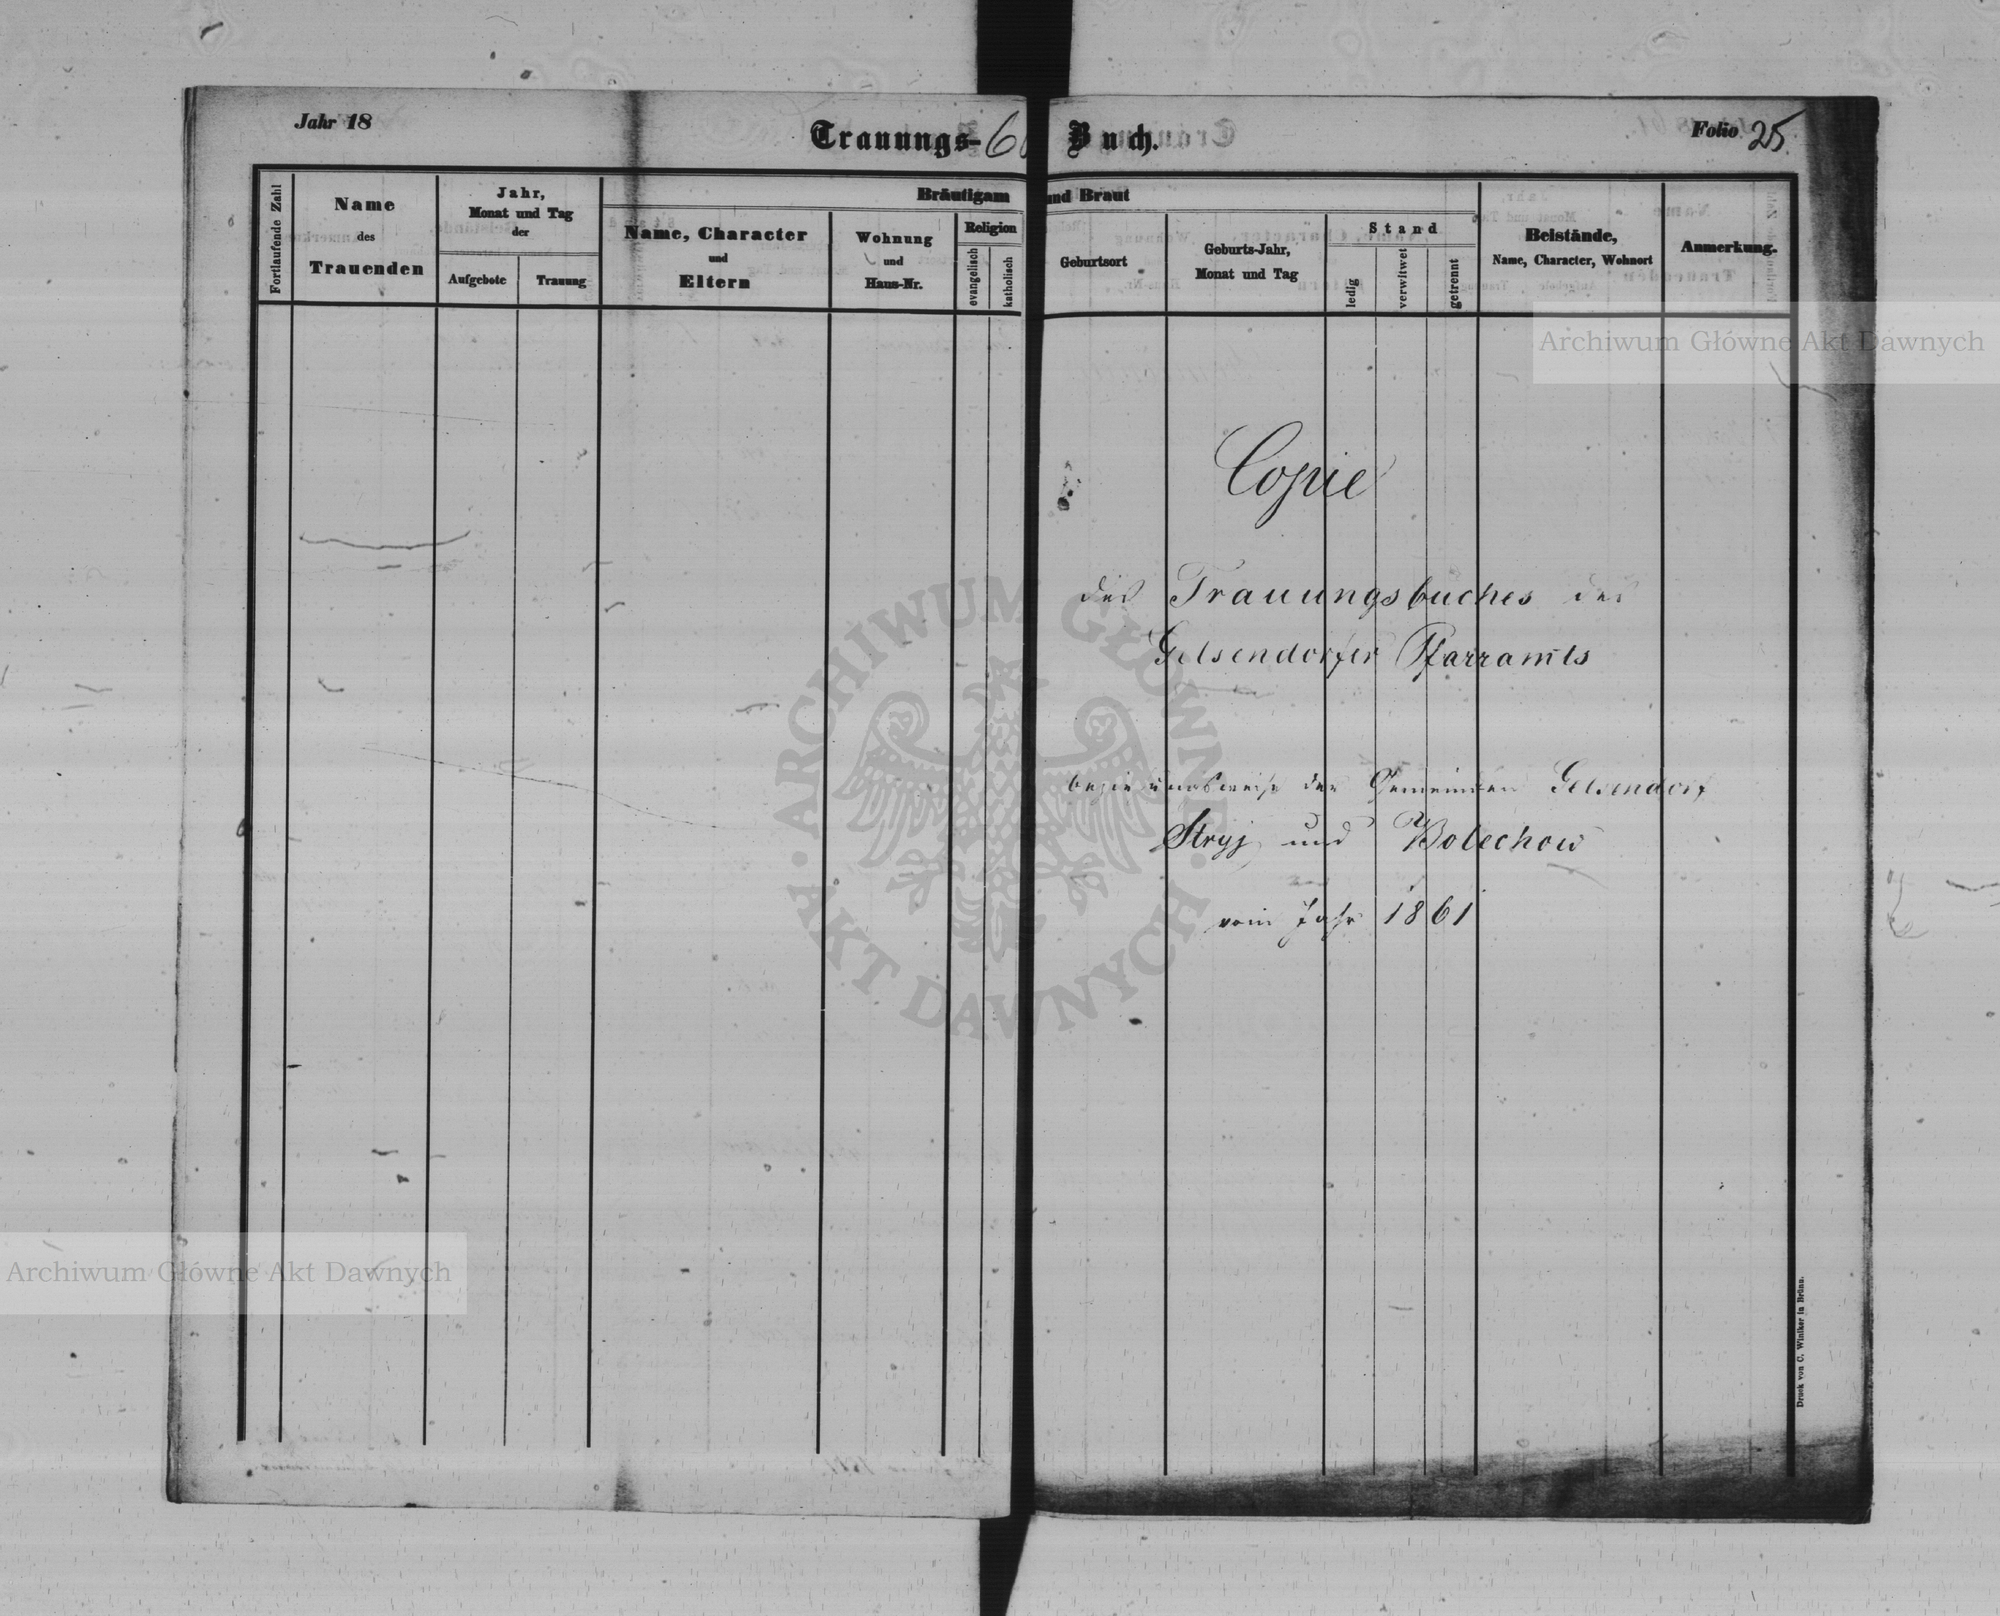 Jahr 18
Trauungs-
Buch.
Folio 25.
Fortlaufende Zahl
Name
des
Trauenden
Jahr,
Monat und Tag
der
Aufgebote
Trauung
Bräutigam
und Braut
Name, Character
und
Eltern
Wohnung
und
Haus-Nr.
Religion
evangelisch
katholisch
Geburtsort
Geburts-Jahr,
Monat und Tag
Stand
ledig
verwitwet
getrennt
Beistände,
Name, Character, Wohnort
Anmerkung.
Copie
des Trauungsbuches des
Gelsendorfer Pfarramts
der Gemeinden Gelsendorf
Stryj und Bolechow
vom Jahr 1861
Druck von C. Winiker in Brünn.
Archiwum Główne Akt Dawnych
Archiwum Główne Akt Dawnych
ARCHIWUM GŁÓWNE
AKT DAWNYCH